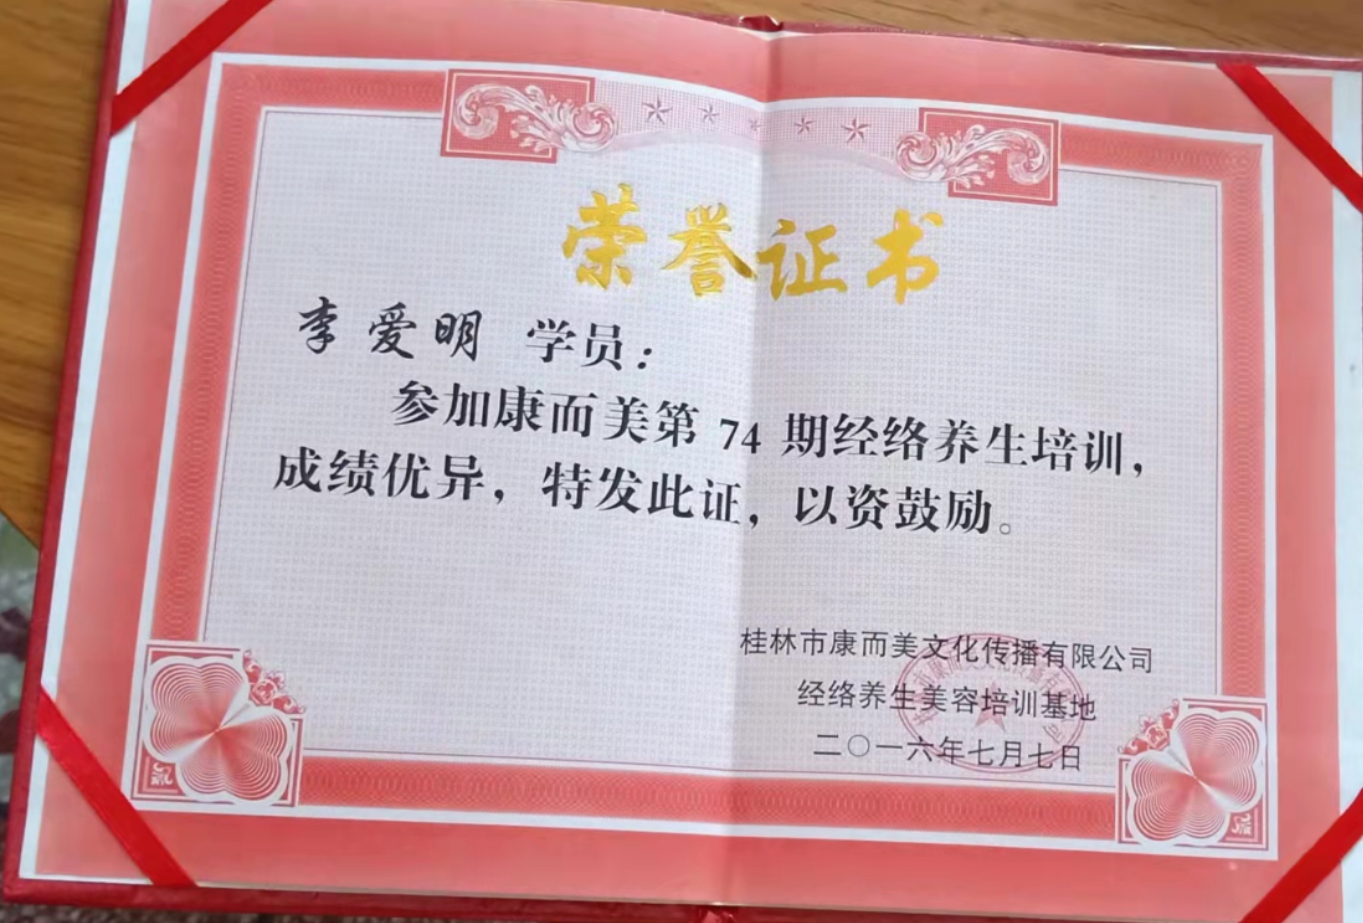 荣誉证书
李爱明 学员：
参加康而美第 74 期经络养生培训，
成绩优异，特发此证，以资鼓励。
桂林市康而美文化传播有限公司
经络养生美容培训基地
二〇一六年七月七日